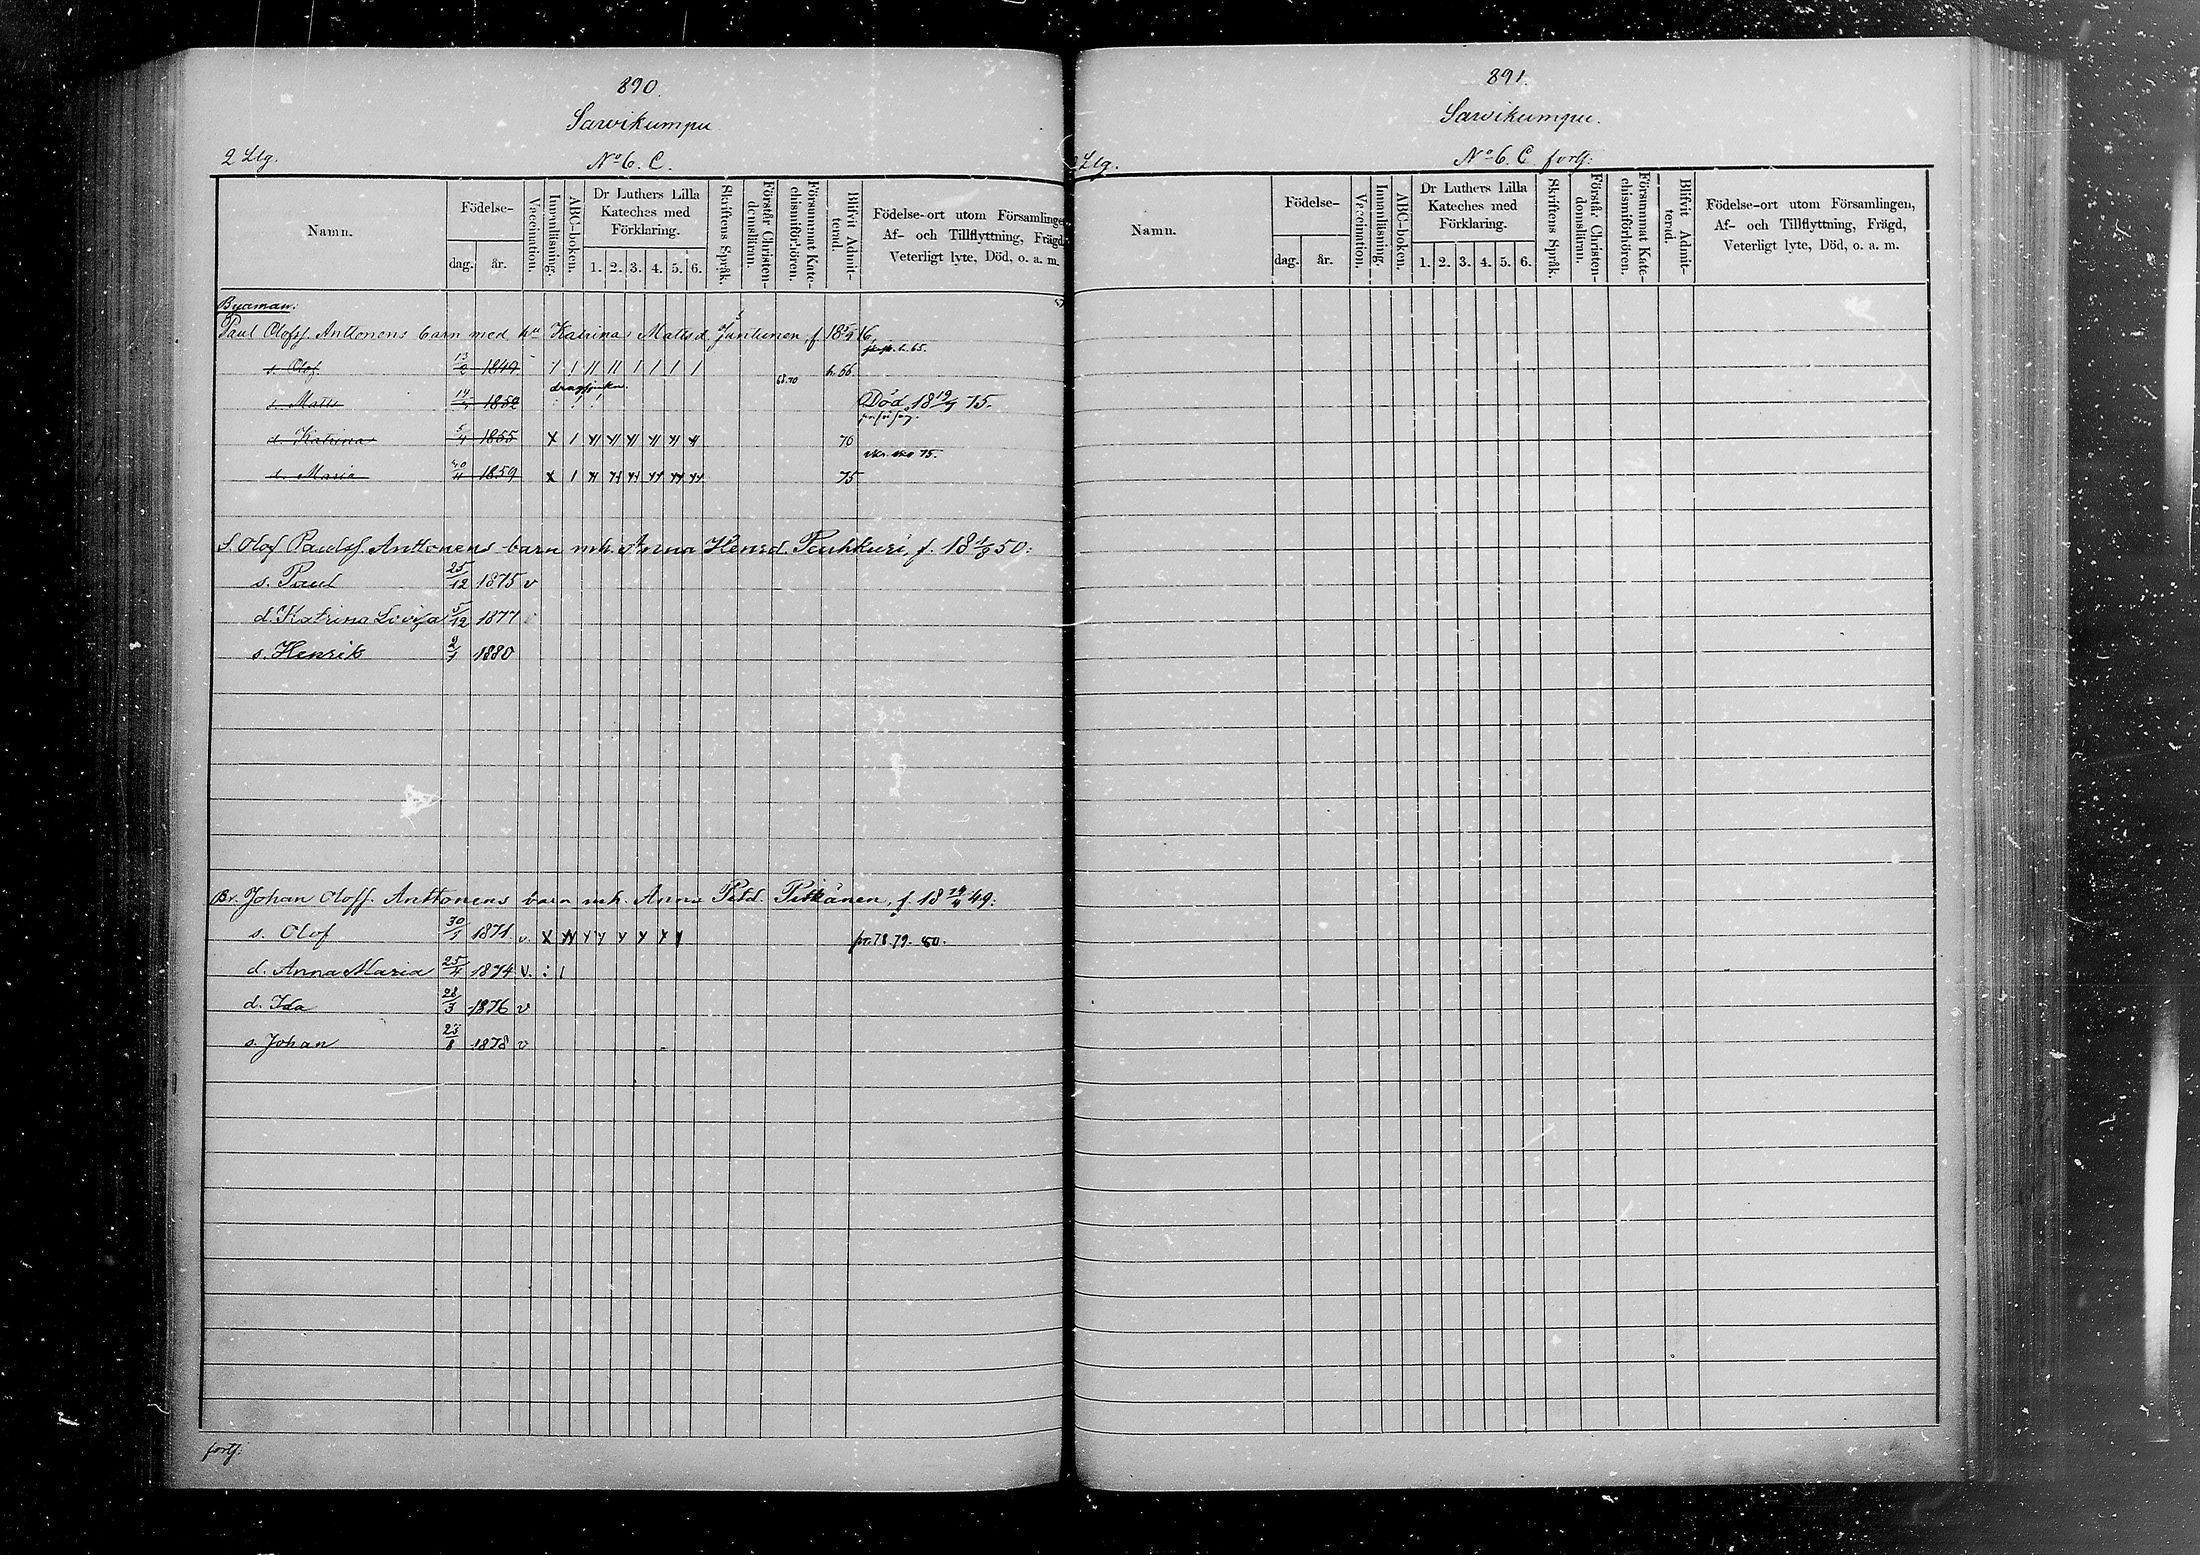 890.
Sarvikumpu
2 Llg.
No 6. C.
Namn.
Födelse-
dag.
år.
Vaccination.
Innanläsning.
ABC-boken.
Dr Luthers Lilla
Kateches med
Förklaring.
1. 2. 3. 4. 5. 6.
Skriftens Språk.
Förstår Christen-
domsläran.
Försummat Kate-
chismiförhören.
Blifvit Admit-
terad.
Födelse-ort utom Församlingen
Af- och Tillflyttning, Frägd
Veterligt lyte, Död, o. a. m.
Byaman:
Paul Olofss. Anttonens barn med hu Katrina Mattsd. Jantunen, f. 18 16,
l. 65.
s. Olof 13/2 1849 / / // // / / / / h. 66.
68. 70
s. Matts 14 1852 Död 18 19 75.
d. Katrina 5/4 1855 x / 70
75.
d. Maria 1859 x / 75
S. Olof Paulss. Anttonens barn mh. Anna Henrd. Puhkuri, f. 18 50:
s. Paul 25/12 1875 v
d. Katrina Lovisa 5/12 1877
s. Henrik 2/1 1880
Br. Johan Olofs. Anttonens barn mh. Anna Petd. Pitkänen, f. 18 14/4 49:
s. Olof 30 1871 v. pr. 78. 79. 80.
d. Anna Maria 25/4 1874 v. : /
d. Ida 28/3 1876 v
s. Johan 23/8 1878 v
forts:
891.
Sarvikumpu.
2 Llg.
No 6. C forts:
Namn.
Födelse-
dag.
år.
Vaccination.
Innanläsning.
ABC-boken.
Dr Luthers Lilla
Kateches med
Förklaring.
1. 2. 3. 4. 5. 6.
Skriftens Språk.
Förstår Christen-
domsläran.
Försummat Kate-
chismiförhören.
Blifvit Admit-
terad.
Födelse-ort utom Församlingen,
Af- och Tillflyttning, Frägd,
Veterligt lyte, Död, o. a. m.